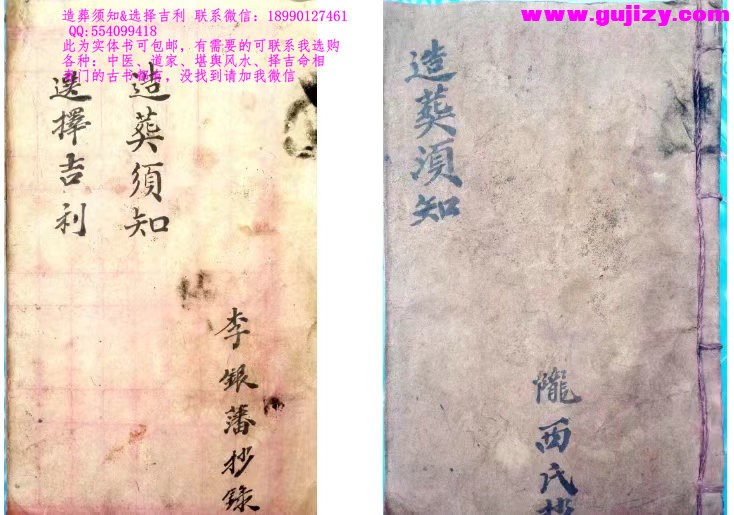 造葬须知&选择吉利 联系微信：18990127461
QQ:554099418
此为实体书可包邮，有需要的可联系我选购
各种：中医、道家、堪舆风水、择吉命相
门的古书都有，没找到请加我微信
www.gujizy.com
造葬須知
選擇吉利
李銀藩抄錄
造葬須知
隴西氏抄